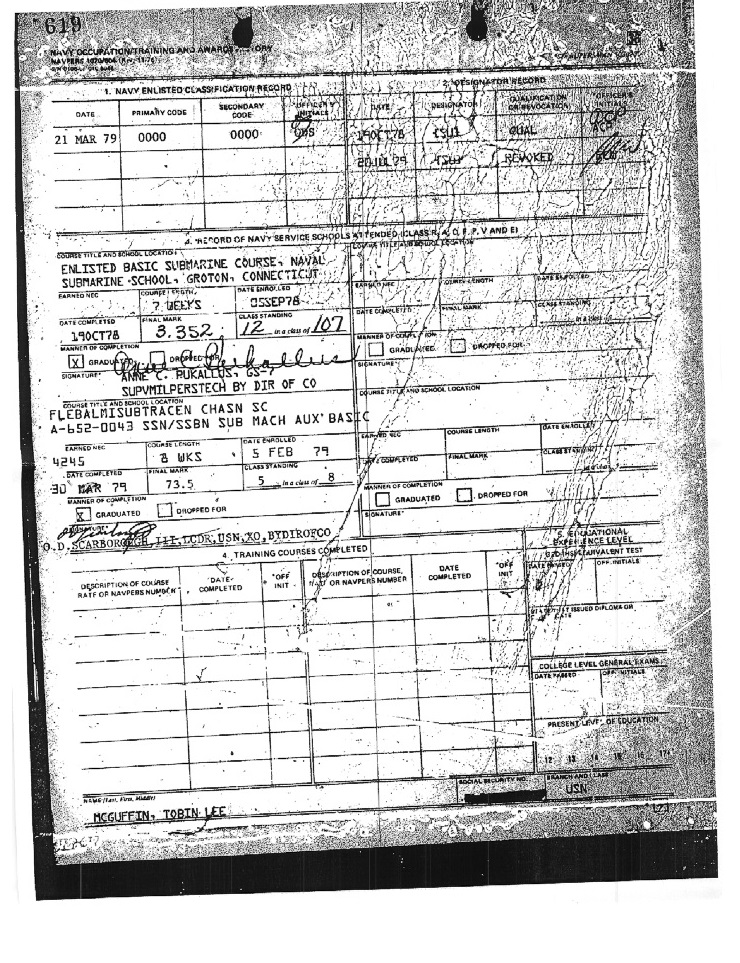 619
38
NAVY OCCUPATION/TRAINING AND AWARDS HISTORY
1. NAVY ENLISTED CLASSIFICATION RECORD
2. DESIGNATOR RECORD
DATE PRIMARY CODE SECONDARY CODE OFFICER'S INITIALS DATE DESIGNATOR QUALIFICATION OR REVOCATION OFFICER'S INITIALS
21 MAR 79 0000 0000 19OCT78 QUAL ACP
79 REVOKED
RECORD OF NAVY SERVICE SCHOOLS ATTENDED
COURSE TITLE AND SCHOOL LOCATION
ENLISTED BASIC SUBMARINE COURSE, NAVAL
SUBMARINE SCHOOL, GROTON, CONNECTICUT
EARNED NEC COURSE LENGTH DATE ENROLLED EARNED NEC COURSE LENGTH DATE ENROLLED
WEEKS
DATE COMPLETED FINAL MARK CLASS STANDING DATE COMPLETED FINAL MARK CLASS STANDING
19OCT78 3.352 12 in a class of 107
MANNER OF COMPLETION MANNER OF COMPLETION
X GRADUATED DROPPED FOR GRADUATED DROPPED FOR
SIGNATURE SIGNATURE
ANNE C. PUKALLUS, GS-
SUPVMILPERSTECH BY DIR OF CO
COURSE TITLE AND SCHOOL LOCATION COURSE TITLE AND SCHOOL LOCATION
FLEBALMISUBTRACEN CHASN SC
A-652-0043 SSN/SSBN SUB MACH AUX BASIC
EARNED NEC COURSE LENGTH DATE ENROLLED EARNED NEC COURSE LENGTH DATE ENROLLED
4245 8 WKS 5 FEB 79
DATE COMPLETED FINAL MARK CLASS STANDING DATE COMPLETED FINAL MARK CLASS STANDING
30 MAR 79 73.5 5 in a class of 8
MANNER OF COMPLETION MANNER OF COMPLETION
X GRADUATED DROPPED FOR GRADUATED DROPPED FOR
SIGNATURE SIGNATURE
O.D. SCARBOROUGH, III, LCDR, USN, XO, BYDIROFCO
4. TRAINING COURSES COMPLETED
5. EDUCATIONAL EXPERIENCE LEVEL
DESCRIPTION OF COURSE RATE OR NAVPERS NUMBER DATE COMPLETED OFF INIT DESCRIPTION OF COURSE, RATE OR NAVPERS NUMBER DATE COMPLETED OFF INIT
DATE PASSED OFF. INITIALS
COLLEGE LEVEL GENERAL EXAMS
DATE PASSED OFF. INITIALS
PRESENT LEVEL OF EDUCATION
12 13 14 15 16 17+
NAME (Last, First, Middle) SOCIAL SECURITY NO. BRANCH AND CLASS
MCGUFFIN, TOBIN LEE USN